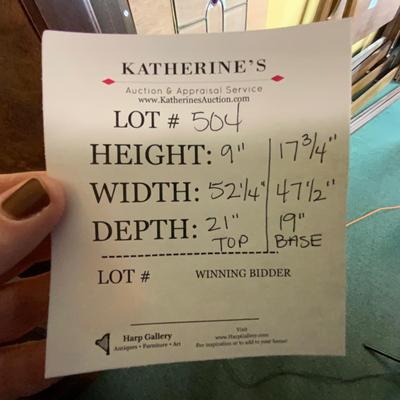 KATHERINE'S
Auction & Appraisal Service
www.KatherinesAuction.com
LOT # 504
HEIGHT: 9" 17 3/4"
WIDTH: 52 1/4" 47 1/2"
DEPTH: 21" 19"
TOP BASE
LOT # WINNING BIDDER
Harp Gallery
Antiques • Furniture • Art
Visit
www.HarpGallery.com
For inspiration or to add to your home!